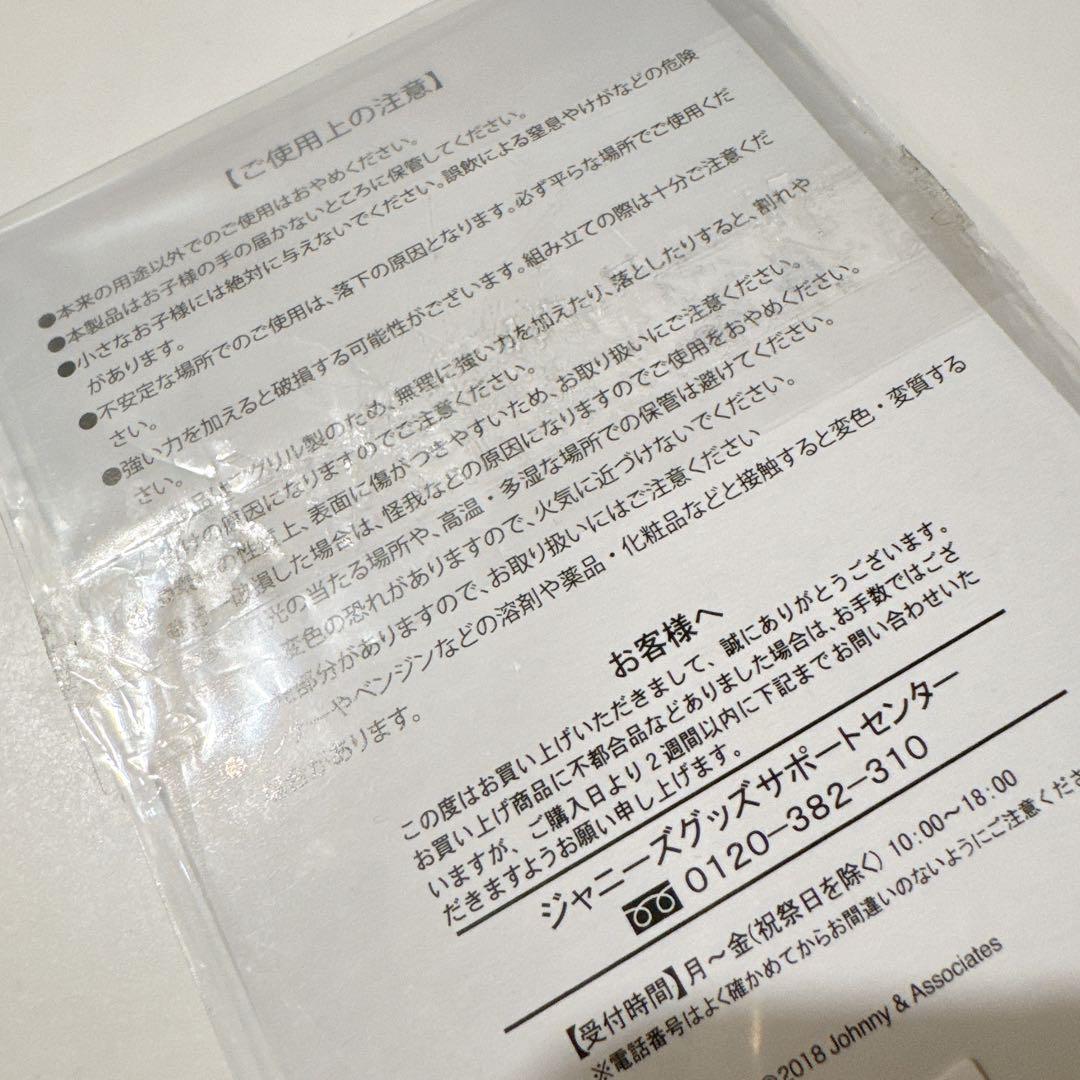 【ご使用上の注意】
●本来の用途以外でのご使用はおやめください。
●本製品はお子様の手の届かないところに保管してください。
●小さなお子様には絶対に与えないでください。誤飲による窒息やけがなどの危険
があります。
●不安定な場所でのご使用は、落下の原因となります。必ず平らな場所でご使用くだ
さい。
●強い力を加えると破損する可能性がございます。組み立ての際は十分ご注意くだ
さい。
品はアクリル製のため、無理に強い力を加えたり、落としたりすると、割れや
の原因になりますのでご注意ください。
の性質上、表面に傷がつきやすいため、お取り扱いにご注意ください。
破損した場合は、怪我などの原因になりますのでご使用をおやめください。
光の当たる場所や、高温・多湿な場所での保管は避けてください。
変色の恐れがありますので、火気に近づけないでください。
部分がありますので、お取り扱いにはご注意ください
ーやベンジンなどの溶剤や薬品・化粧品などと接触すると変色・変質する
があります。
お客様へ
この度はお買い上げいただきまして、誠にありがとうございます。
お買い上げ商品に不都合品などありました場合は、お手数ではござ
いますが、ご購入日より2週間以内に下記までお問い合わせいた
だきますようお願い申し上げます。
ジャニーズグッズサポートセンター
0120-382-310
【受付時間】月〜金(祝祭日を除く) 10:00〜18:00
※電話番号はよく確かめてからお間違いのないようにご注意くださ
©2018 Johnny & Associates